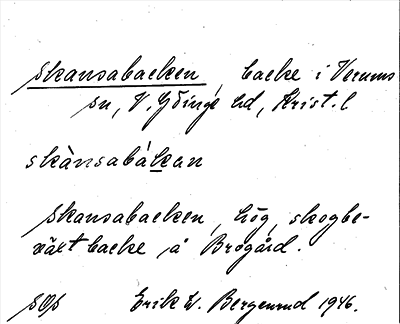 Skansabacken, backe i Verums
sn, V. Göinge hd, Krist. l
skànsabákan
Skansabacken, hög, skogbe-
växt backe å Brogård.
sOs Erik W. Bergenrud 1946.